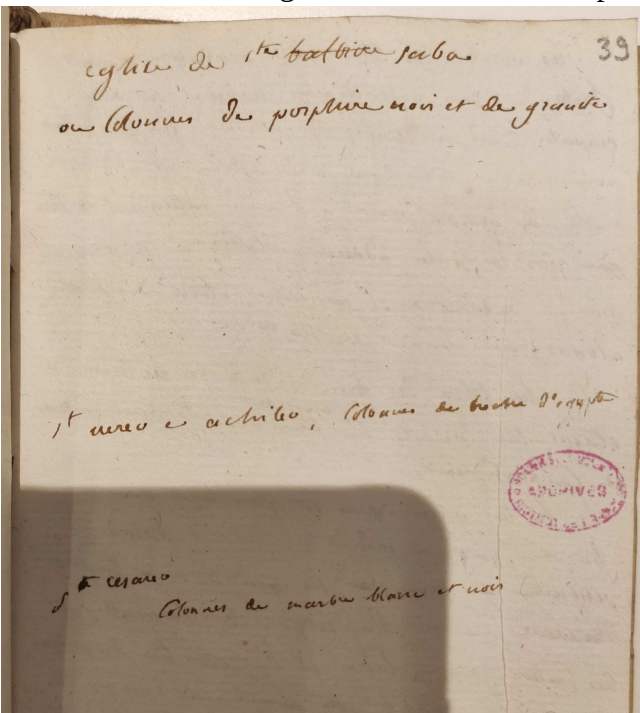 39
eglise de ste balbine saba
ou Colonnes de porphire noir et de granite
st nereo e achileo, Colonnes de breche d'egypte
ARCHIVES
st cesareo
Colonnes de marbre blanc et noir